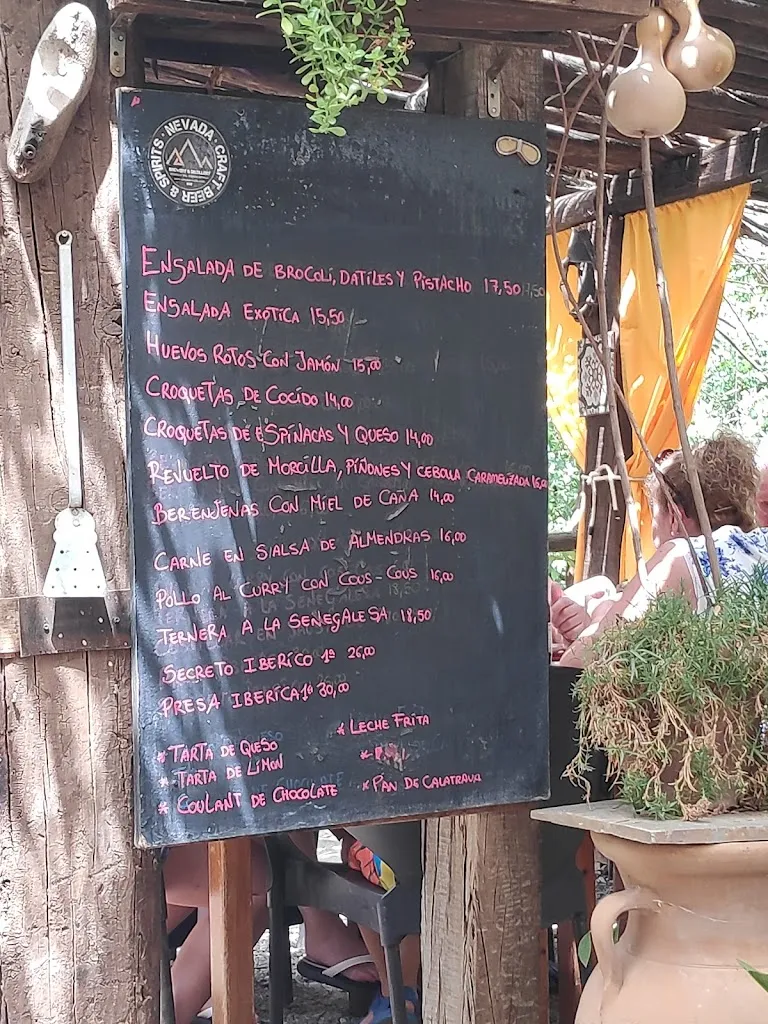 NEVADA CRAFT BEER & SPIRITS
ENSALADA DE BROCOLI, DATILES Y PISTACHO 17,50
ENSALADA EXOTICA 15,50
HUEVOS ROTOS CON JAMÓN 15,00
CROQUETAS DE COCIDO 14,00
CROQUETAS DE ESPINACAS Y QUESO 14,00
REVUELTO DE MORCILLA, PIÑONES Y CEBOLLA CARAMELIZADA 16,00
BERENJENAS CON MIEL DE CAÑA 14,00
CARNE EN SALSA DE ALMENDRAS 16,00
POLLO AL CURRY CON COUS-COUS 16,00
TERNERA A LA SENEGALESA 18,50
SECRETO IBERICO 1ª 26,00
PRESA IBERICA 1ª 30,00
* LECHE FRITA
* TARTA DE QUESO
* TARTA DE LIMON
* COULANT DE CHOCOLATE
* PAN DE CALATRAVA